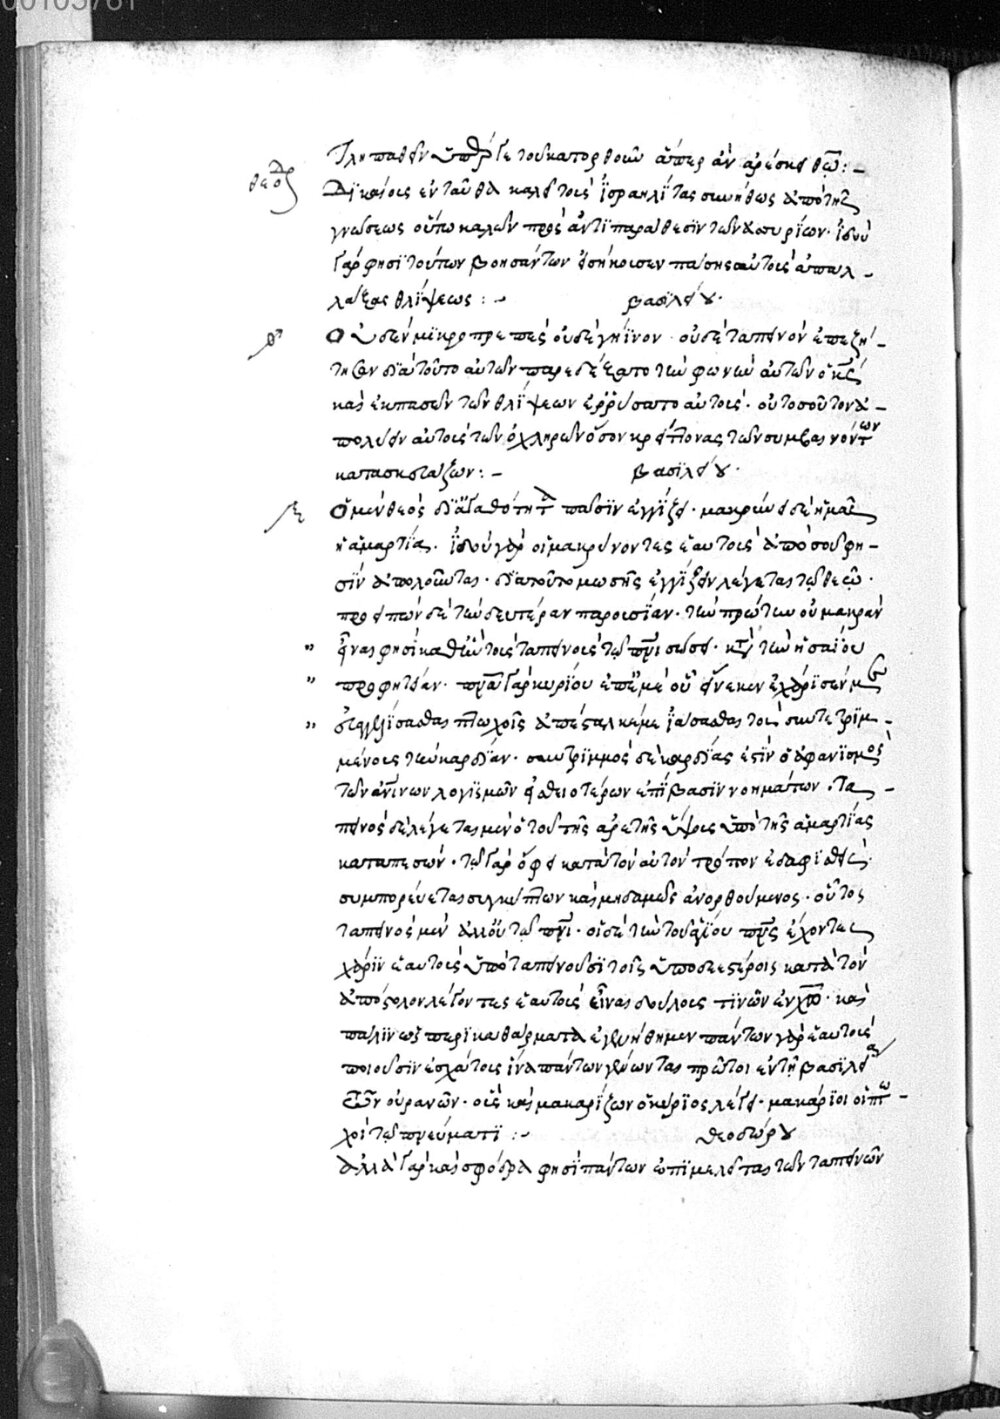 00105781
τληπαθεῖν ὑπὲρ γε τοῦ κατορθοῦν ἅπερ ἂν ἀρέσκει θῶ: –
θεοδ
Δικαίοις ἐνταῦθα καλεῖ τοὺς ἰσραηλίτας συνήθως ἀπὸ τῆς
γνώσεως οὕτω καλῶν πρὸς ἀντιπαράθεσιν τῶν ἀσυρίων. ἰδοὺ
γάρ φησι τούτων βοησάντων εἰσήκουσεν πάσης αὐτοὺς ἀπαλ –
λάξας θλίψεως: – βασιλείου.
Οὐδὲν μικροπρεπὲς οὐδὲ γήϊνον. οὐδὲ ταπεινὸν ἐπεζή –
τησαν διὰ τοῦτο αὐτῶν παρεδέξατο τὴν φωνὴν αὐτῶν ὁ κς
καὶ ἐκ πασῶν τῶν θλίψεων ἐρρύσατο αὐτούς. οὐ τοσοῦτον ἀ –
πολύων αὐτοὺς τῶν ὀχληρῶν ὅσον κρείττονας τῶν συμβαινόντων
κατασκευάζων: – βασιλείου.
Ὁ μὲν θεὸς δι ἀγαθότητα πᾶσιν ἐγγίζει. μακρύνει δὲ ἡμᾶς
ἡ ἁμαρτία. ἰδοὺ γὰρ οἱ μακρύνοντες ἑαυτοὺς ἀπὸ σοῦ φη –
σὶν ἀπολοῦνται. διὰ τοῦτο μωσῆς ἐγγίζειν λέγεται τῶ θεῶ.
προειπὼν δὲ τὴν δευτέραν παρουσίαν. τὴν πρώτην οὐ μακρὰν
" εἶναι φησί καθ ἣν τοὺς ταπεινοὺς τῶ πνι σώσει. κτ τὴν ἠσαΐου
" προφητείαν. πνα γὰρ κυρίου ἐπ ἐμὲ οὗ εἵνεκεν ἔχρισέν με
" εὐαγγελίσασθαι πτωχοῖς ἀπέσταλκέ με ἰάσασθαι τοὺς συντετριμ –
μένους τὴν καρδίαν. συντριμμὸς δὲ καρδίας ἐστὶν ὁ ἀφανισμὸς
τῶν ἀνίνων λογισμῶν ἡ θειοτέρων ἐπίβασιν νοημάτων. Τα –
πεινὸς δὲ λέγεται μὲν ὁ τοῦ τῆς ἀρετῆς ὕψους ὑπὸ τῆς ἁμαρτίας
καταπεσών. τῶ γὰρ ὄφει κατὰ τὸν αὐτὸν τρόπον ἐδαφισθεὶς
συμπορεύεται συγκύπτων καὶ μηδαμῶς ἀνορθούμενος. οὗτος
ταπεινὸς μὲν ἀλλ οὐ τῶ πνι. οἱ δὲ τὴν τοῦ ἁγίου πνς ἔχοντες
χάριν ἑαυτοὺς ὑποταπεινοῦσι τοῖς ὑποδεεστέροις κατὰ τὸν
ἀπόστολον λέγοντες ἑαυτοὺς εἶναι δούλους τινῶν ἐν χῶ. καὶ
πάλιν ὡς περικαθάρματα ἐγενήθημεν πάντων γὰρ ἑαυτοὺς
ποιοῦσιν ἐσχάτους ἵνα πάντων γένωνται πρῶτοι ἐν τῆ βασιλεία
τῶν οὐρανῶν. οὓς καὶ μακαρίζων ὁ κύριος λέγει. μακάριοι οἱ πτω –
χοὶ τῶ πνεύματι: – θεοδώρου
ἀλλὰ γὰρ καὶ σφόδρα φησὶ πάντων ἐπιμελεῖται τῶν ταπεινῶν